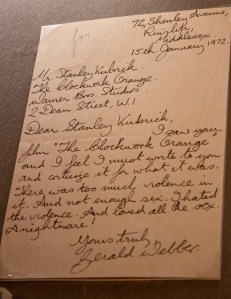 72, Shenley Avenue,
Ruislip,
Middlesex.
15th January, 1972.
Mr. Stanley Kubrick.
"The Clockwork Orange.
Warner Bros. Studios
2 Dean Street, W.1.
Dear Stanley Kubrick,
I saw your
film "The Clockwork Orange"
and I feel I must write to you
and critize it for what it was.
There was too much violence in
it. And not enough sex. I hated
the violence. And loved all the sex.
A nightmare!
Yours truly
Gerald Webber.